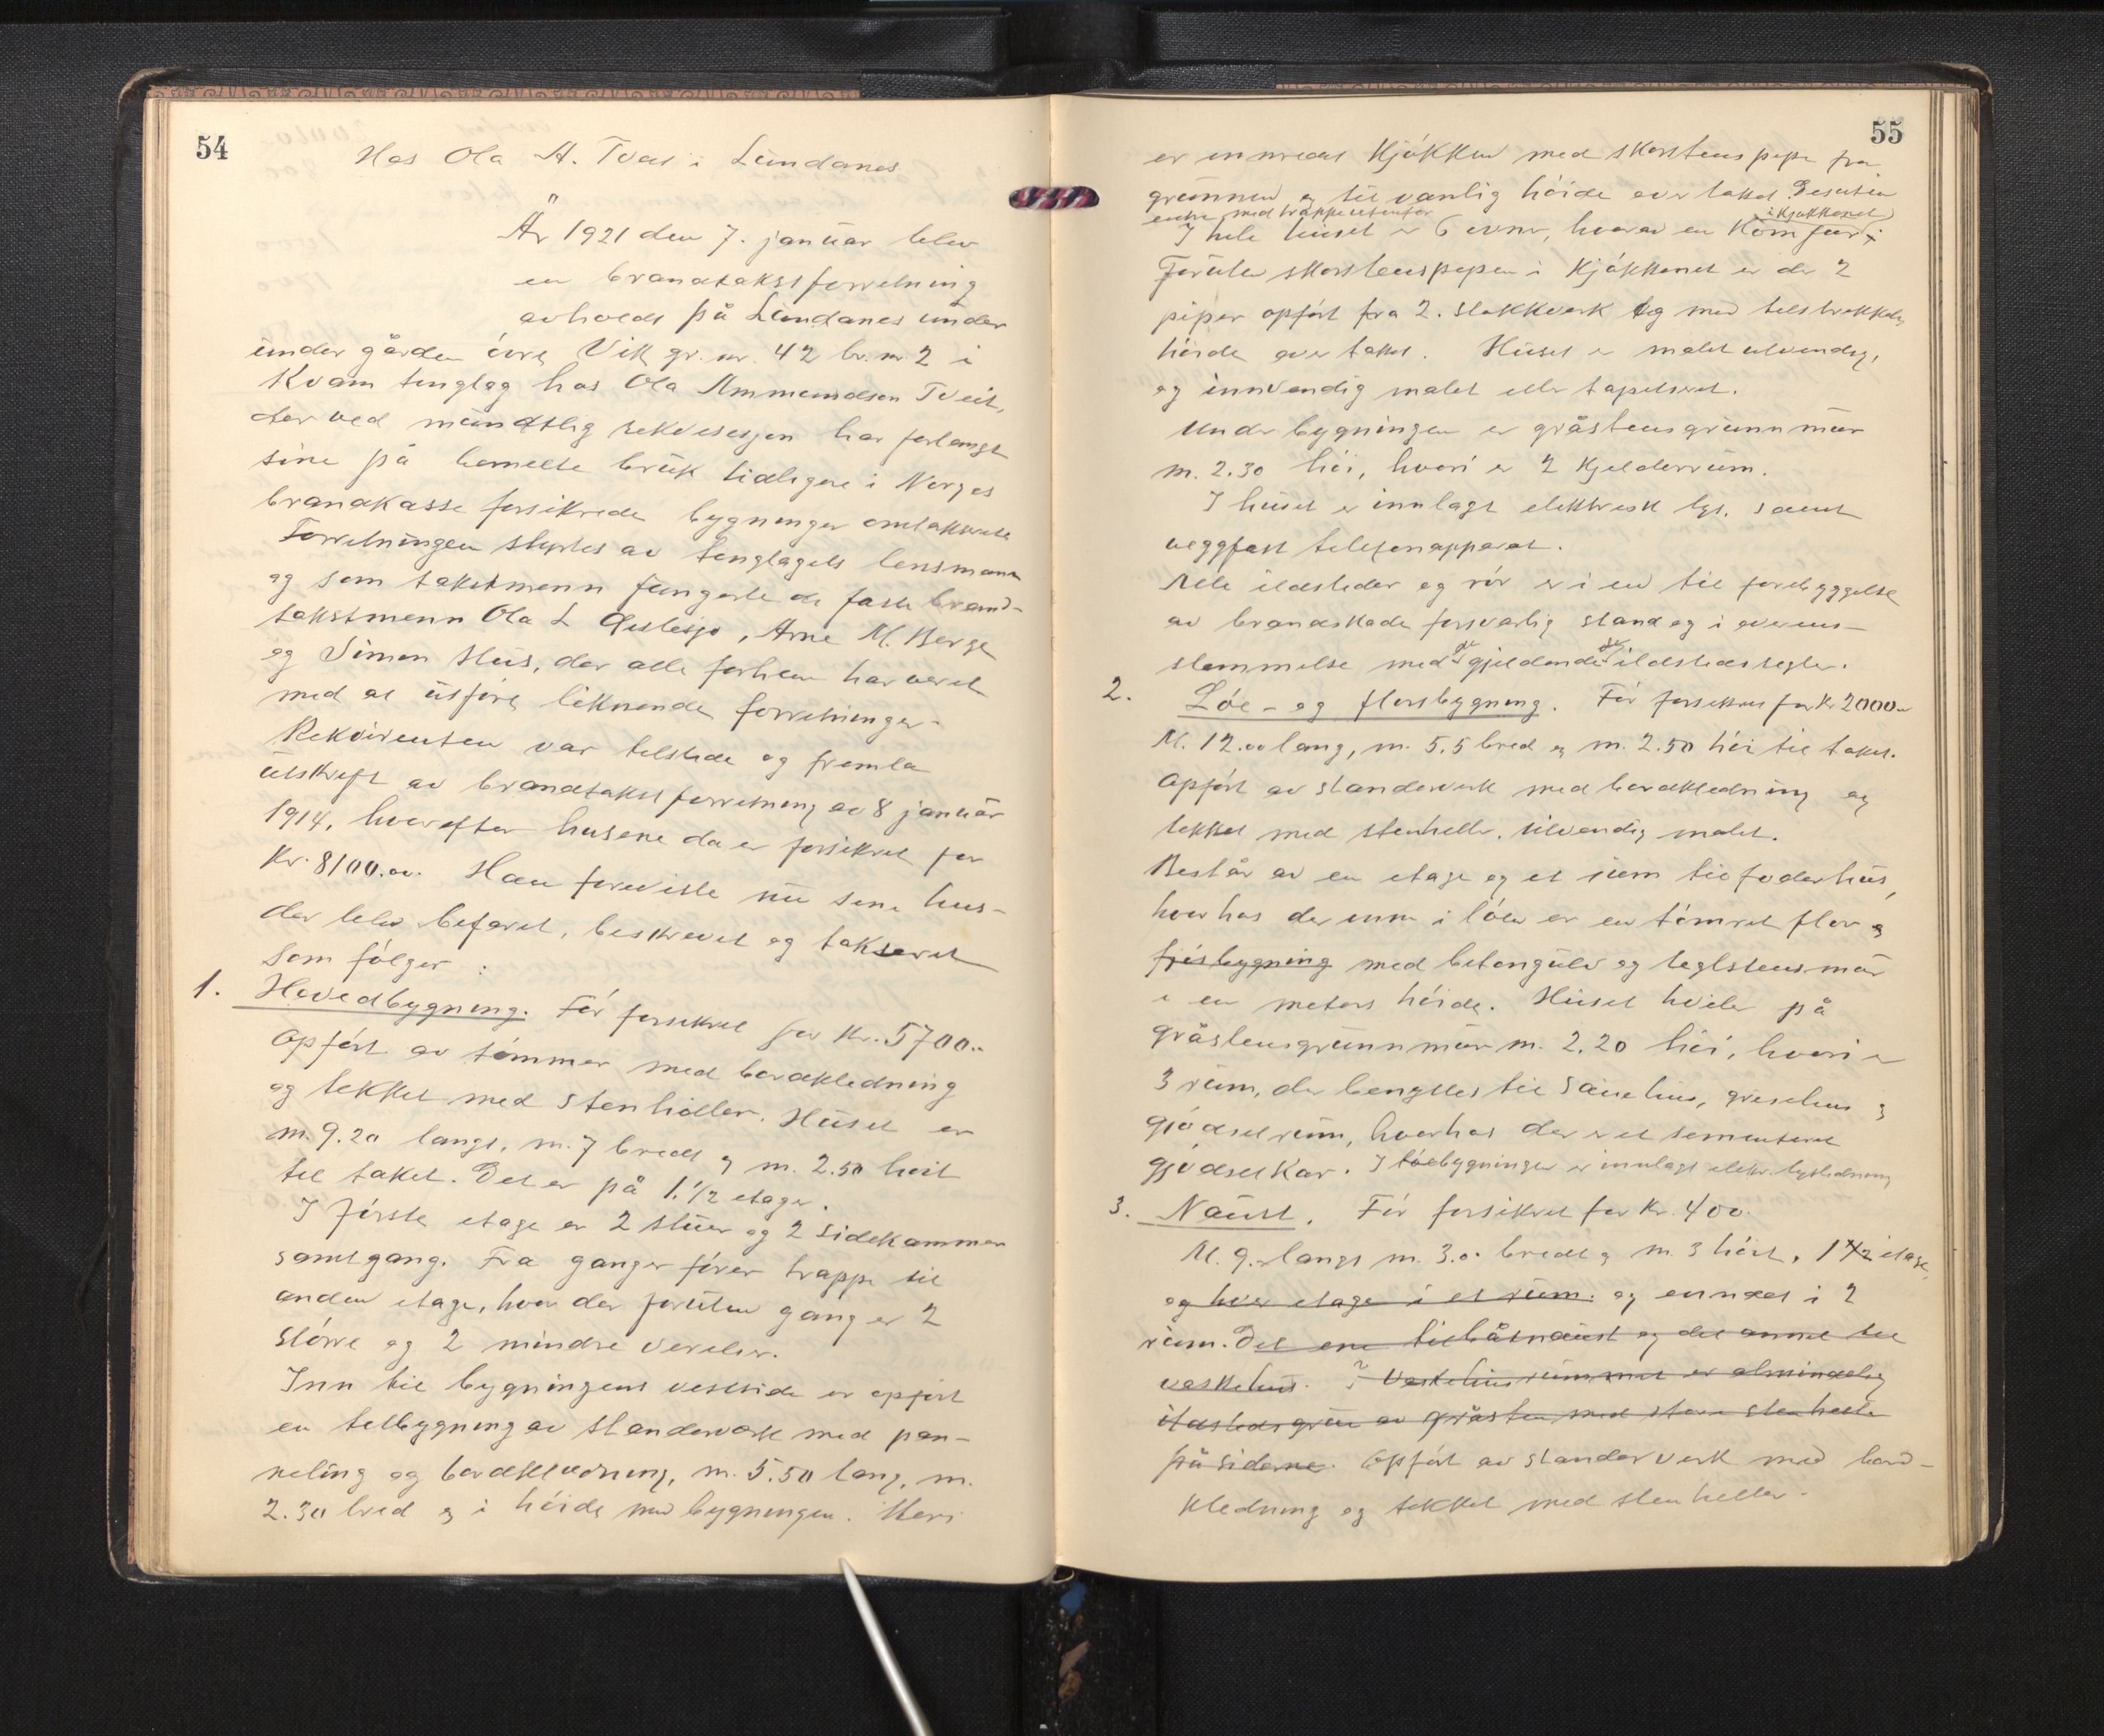 54
Hos Ola A. Tveit i Lundanes
År 1921 den 7. januar blev
en brandtakstforretning
avholdt på Lundanes under
under gården övre Vik gr. nr. 42 br. nr. 2 i
Kvam tinglag hos Ola Ammundsen Tveit,
der ved mundtlig rekvisisjon har forlangt
sine på bemelte bruk tidligere i Norges
brandkasse forsikrede bygninger omtakserte
Forretningen styrtes av tinglagets lensmann
og som takstmenn fungerte de faste brand-
takstmenn Ola L Øistesjø, Arne M. Berge
og Simon Hus, der alle forhen har veret
med at utføre liknende forretninger.
Rekvirenten var tilstede og fremla
utskrift av brandtakstforretning av 8 januar
1914, hvorefter husene da er forsikret for
Kr. 8100.00. Han foreviste nu sine hus-
der blev befaret, beskrevet og taksert
som følger:
1. Hovedbygning. Før forsikret for Kr. 5700.-
Opført av tømmer med bordkledning
og tekket med stenheller. Huset er
m. 9.20 langt, m. 7 bredt og m. 2.50 høit
til taket. Det er på 1.½ etage.
I første etage er 2 stuer og 2 sidekammer
samt gang. Fra gangen fører trapp til
anden etage, hvor der foruten gang er 2
større og 2 mindre verelser.
Inn til bygningens vestside er opført
en tilbygning av standerverk med pan-
neling og bordkledning, m. 5.50 lang, m.
2.30 bred og i høide med bygningen. Heri
55
er innredet Kjøkken med skorstenspipe fra
grunnen og til vanlig høide over taket. Desuten
entre med trappe utenfor
i Kjøkkenet
I hele huset er 6 ovner, hvorav en Komfur i
Foruten skorstenspipen i Kjøkkenet er der 2
piper opført fra 2. stokkverk og med tilstrekkelig
høide over taket. Huset er malet utvendig,
og innvendig malet eller tapetseret.
Under bygningen er gråstensgrunnmur
m. 2.30 høi, hvori er 2 Kjelderrum.
I huset er innlagt elektrisk lys, samt
veggfast telefonapparat.
Alle ildsteder og rør er i en til forebyggelse
av brandskade forsvarlig stand og i overens-
stemmelse med de gjeldende ildstedsregler.
2. Løe- og florsbygning. Før forsikret for Kr 2000.-
M. 12.00 lang, m. 5.5 bred og m. 2.50 høi til taket.
Opført av standerverk med bordkledning og
tekket med stenheller. Utvendig malet.
Består av en etage og et rum til foderhus,
hvorhos der inne i løen er en tømret flor og
fjøsbygning med betongulv og teglstensmur
i en meters høide. Huset hviler på
gråstensgrunnmur m. 2.20 høi, hvori er
3 rum, der benyttes til sauehus, grisehus og
gjødselrum, hvorhos der er et sementeret
gjødselkar. I løebygningen er innlagt elektr. lysledning
3. Naust. Før forsikret for Kr. 400.
M. 9.- langt m. 3.0. bredt og m. 3 høit. 1 ½ etage,
og hver etage i et rum. og inndet i 2
rum. Det ene til båtnaust og det annet til
vaskehus. I vaskehusrummet er almindelig
ildstedsgrue av gråsten med store stenheller
på siderne. Opført av standerverk med bord-
kledning og tekket med stenheller.